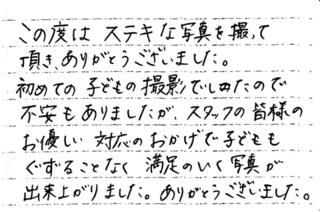 この度は ステキな写真を撮って
頂き、ありがとうございました。
初めての 子どもの撮影でしたので
不安もありましたが、スタッフの皆様の
お優しい 対応のおかげで子どもも
ぐずることなく 満足のいく写真が
出来上がりました。ありがとうございました。